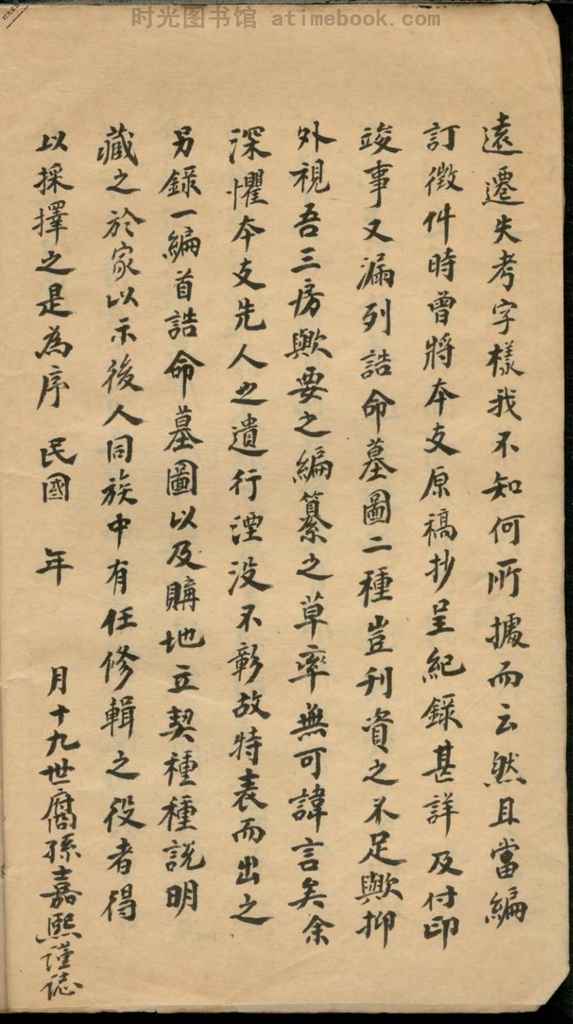 时光图书馆 atimebook.com
遠遷失考字樣我不知何所據而云然且當編
訂徵件時曾將本支原稿抄呈紀錄甚詳及付印
竣事又漏列誥命墓圖二種豈刊資之不足歟抑
外視吾三房歟要之編纂之草率無可諱言矣余
深懼本支先人之遺行湮没不彰故特表而出之
另錄一編首誥命墓圖以及購地立契種種說明
藏之於家以示後人同族中有任修輯之役者得
以採擇之是為序 民國 年 月十九世裔孫嘉熙謹誌